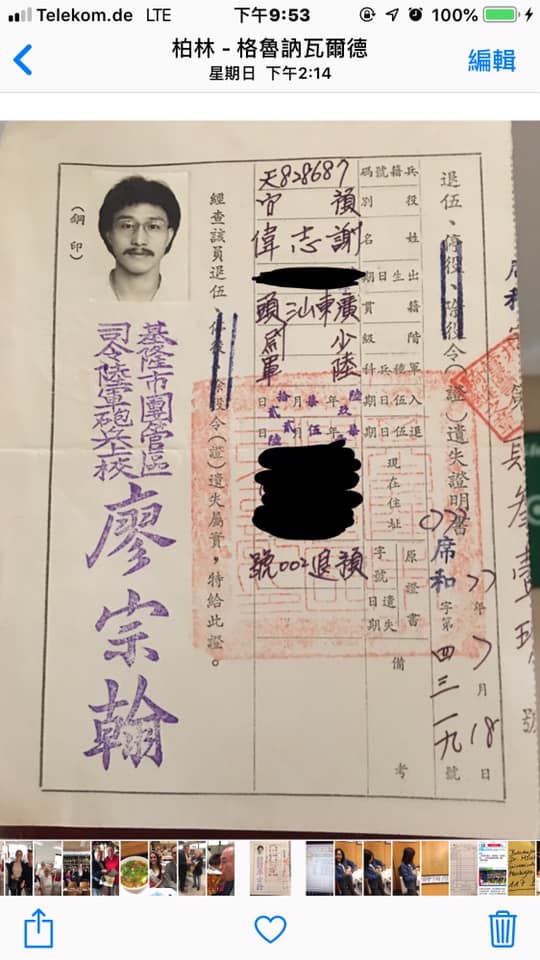 Telekom.de LTE 下午9:53 100%
柏林 - 格魯訥瓦爾德
星期日 下午2:14
編輯
退伍、停役、除役令(證)遺失證明書
席和字第四三一九號
77年7月18日
兵籍號碼 天828687
役別 預
姓名 謝志偉
出生日期
籍貫 廣東汕頭
階級 少尉
軍種兵科 陸軍
入伍日期 年 月 日
退伍日期 年 月 日
現在住址
原證書字號 預退002號
遺失日期
備考
經查該員退伍、停役、除役令(證)遺失屬實，特給此證。
基隆市團管區
司令陸軍砲兵上校
廖宗翰
(鋼印)